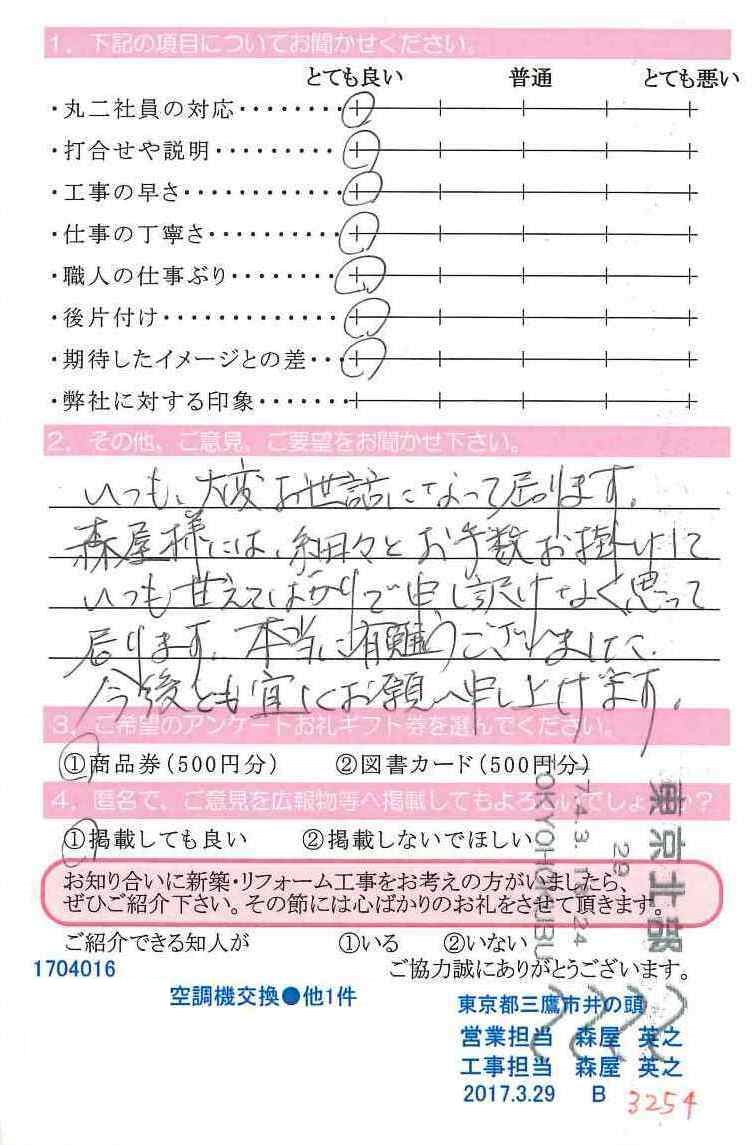 1. 下記の項目についてお聞かせください。
とても良い 普通 とても悪い
・丸二社員の対応・・・・・・・・
・打合せや説明・・・・・・・・・
・工事の早さ・・・・・・・・・・・
・仕事の丁寧さ・・・・・・・・・
・職人の仕事ぶり・・・・・・・・
・後片付け・・・・・・・・・・・・・
・期待したイメージとの差・・・
・弊社に対する印象・・・・・・・
2. その他、ご意見、ご要望をお聞かせ下さい。
いつも、大変お世話になって居ります。
森屋様には、細々とお手数お掛けして
いつも甘えてばかりで申し訳けなく思って
居ります。本当に有難うございました。
今後とも宜しくお願い申し上げます。
3. ご希望のアンケートお礼ギフト券を選んでください。
①商品券(500円分) ②図書カード(500円分)
4. 匿名で、ご意見を広報物等へ掲載してもよろしいでしょうか?
①掲載しても良い ②掲載しないでほしい
お知り合いに新築・リフォーム工事をお考えの方がいましたら、
ぜひご紹介下さい。その節には心ばかりのお礼をさせて頂きます。
ご紹介できる知人が ①いる ②いない
1704016 ご協力誠にありがとうございます。
空調機交換●他1件
東京都三鷹市井の頭
営業担当 森屋 英之
工事担当 森屋 英之
2017.3.29 B
3254
東京北部
29
TOKYOHOKUBU